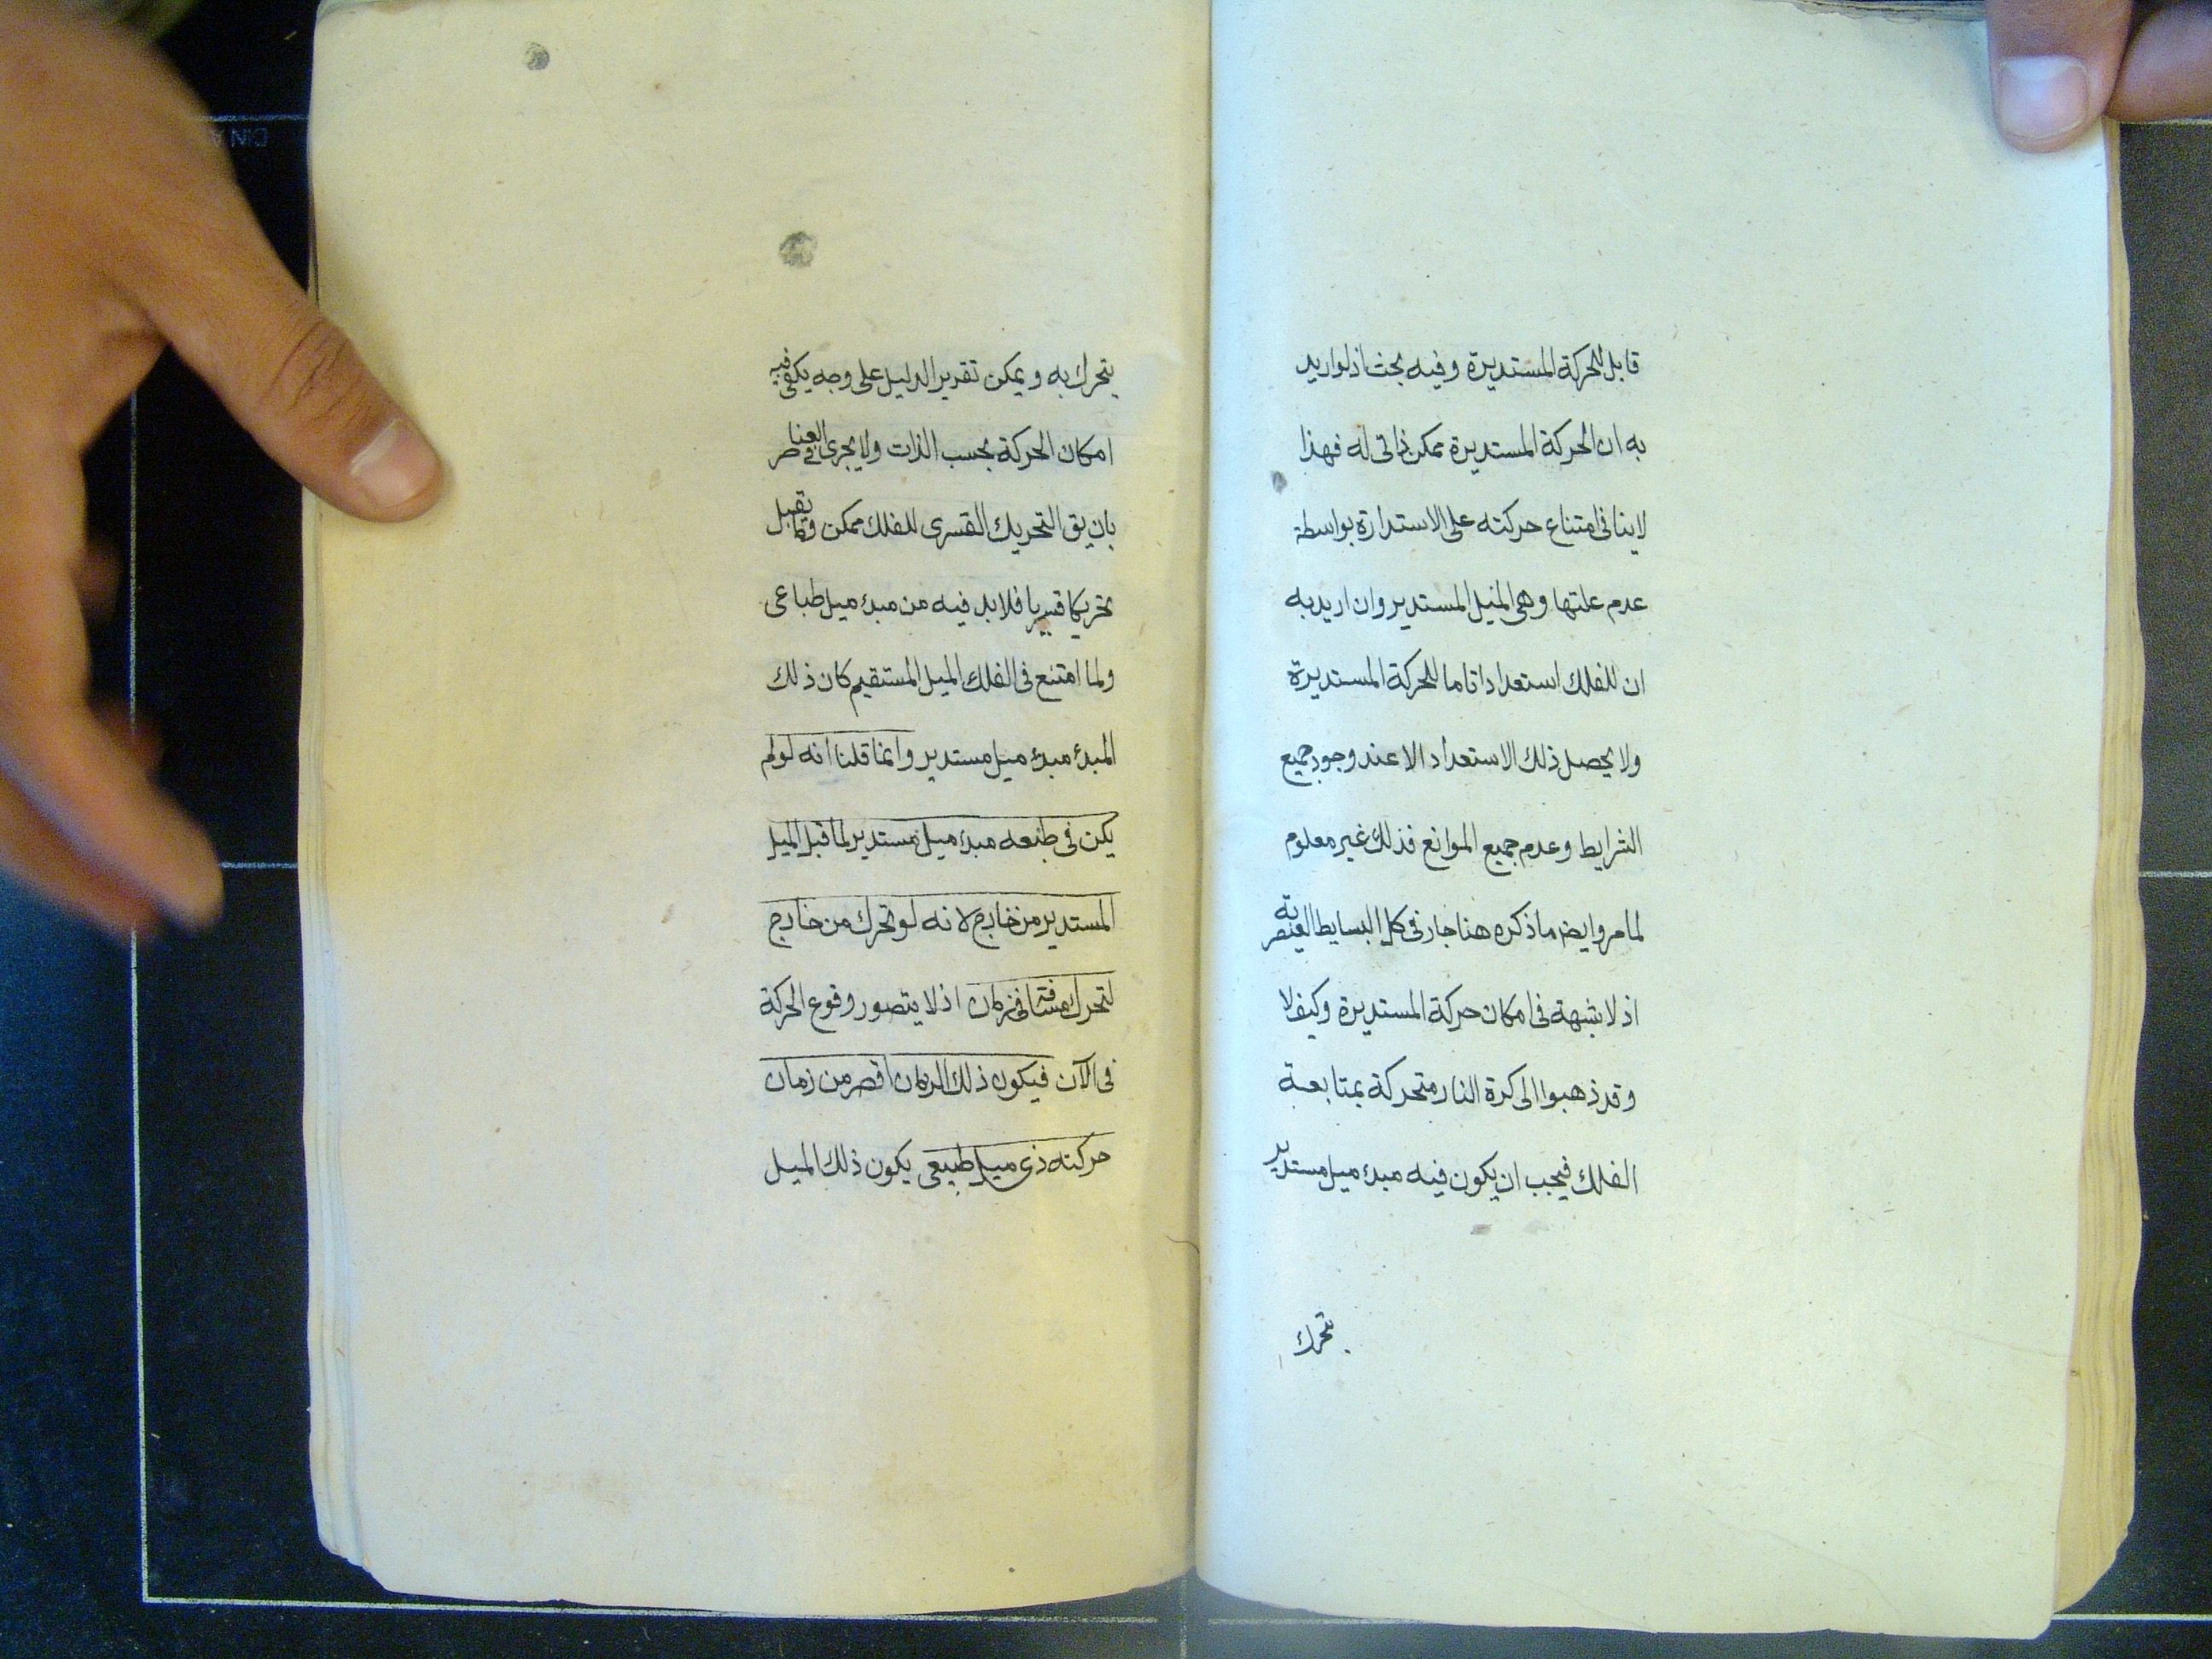 قابل للحركة المستديرة وفيه بحث اذ لو اريد
به ان الحركة المستديرة ممكن ذاتى له فهذا
لا ينافى امتناع حركته على الاستدارة بواسطة
عدم علتها وهى الميل المستدير وان اريد به
ان للفلك استعدادا تاما للحركة المستديرة
ولا يحصل ذلك الاستعداد الا عند وجود جميع
الشرايط وعدم جميع الموانع فذلك غير معلوم
لما مر وايضا ما ذكره هنا جار فى كل البسايط العنصرية
اذ لا شبهة فى امكان حركة المستديرة وكيف لا
وقد ذهبوا الى كرة النار متحركة بمتابعة
الفلك فيجب ان يكون فيه مبدء ميل مستدير
يتحرك
يتحرك به ويمكن تقرير الدليل على وجه يكفى فيه
امكان الحركة بحسب الذات ولا يجرى فى العناصر
بان يق التحريك القسرى للفلك ممكن وكلما يقبل
تحريكا قسريا فلا بد فيه من مبدء ميل طباعى
ولما امتنع فى الفلك الميل المستقيم كان ذلك
المبدء مبدء ميل مستدير وانما قلنا انه لو لم
يكن فى طبعه مبدء ميل مستدير لما قبل الميل
المستدير من خارج لانه لو تحرك من خارج
لتحرك مسافة فى زمان اذ لا يتصور وقوع الحركة
فى الآن فيكون ذلك الزمان اقصر من زمان
حركته ذى ميل طبيعى يكون ذلك الميل
DIN